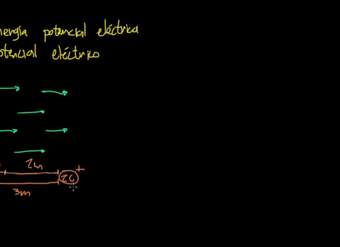 nergía potencial eléctrica
otencial eléctrico
2m
2C
+
3m